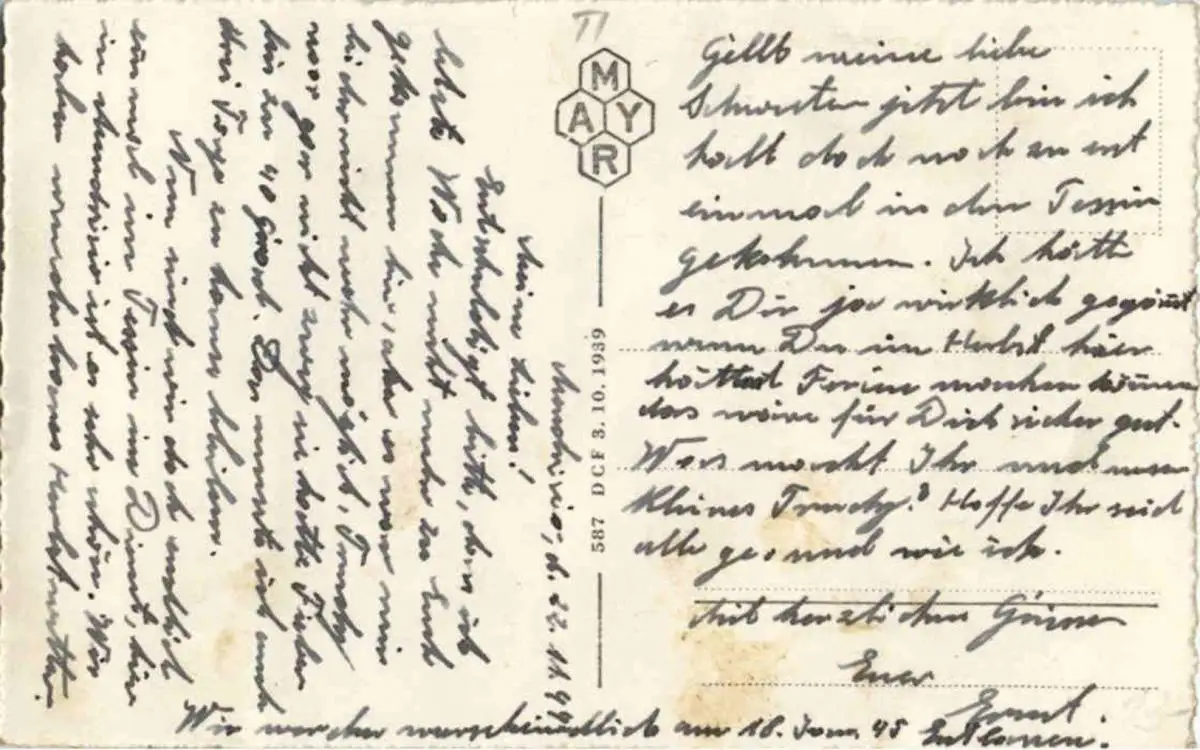 Mendrisio, d. 22.11.44
Meine Lieben!
Entschuldigt bitte, dass ich
letzte Woche nicht mehr zu Euch
gekommen bin, aber es war mir
leider nicht mehr möglich, Trudy
war gar nicht zweg sie hatte Fieber
bis zu 40 grad. Dan musste ich auch
drei Tage zu hause bleiben.
Nun sind wir doch endlich
einmal im Tessin im Dienst, hier
in Mendrisio ist es sehr schön. Wir
haben wunderbares Herbstwetter.
Gellt meine liebe
Schwester jetzt bin ich
halt doch noch zu erst
einmal in den Tessin
gekohmmen. Ich hätte
es Dir ja wirklich gegönnt
wenn Du im Herbst hier
hättest Ferien machen können
das wäre für Dich sicher gut.
Was macht Ihr und unser
kleines Trudy? Hoffe Ihr seid
alle gesund wie ich.
Mit herzlichen Grüssen
Euer
Ernst.
Wir werden warscheindlich am 18. Jan. 45 Entlassen.
TI
MAYR
587 DCF 3.10.1939